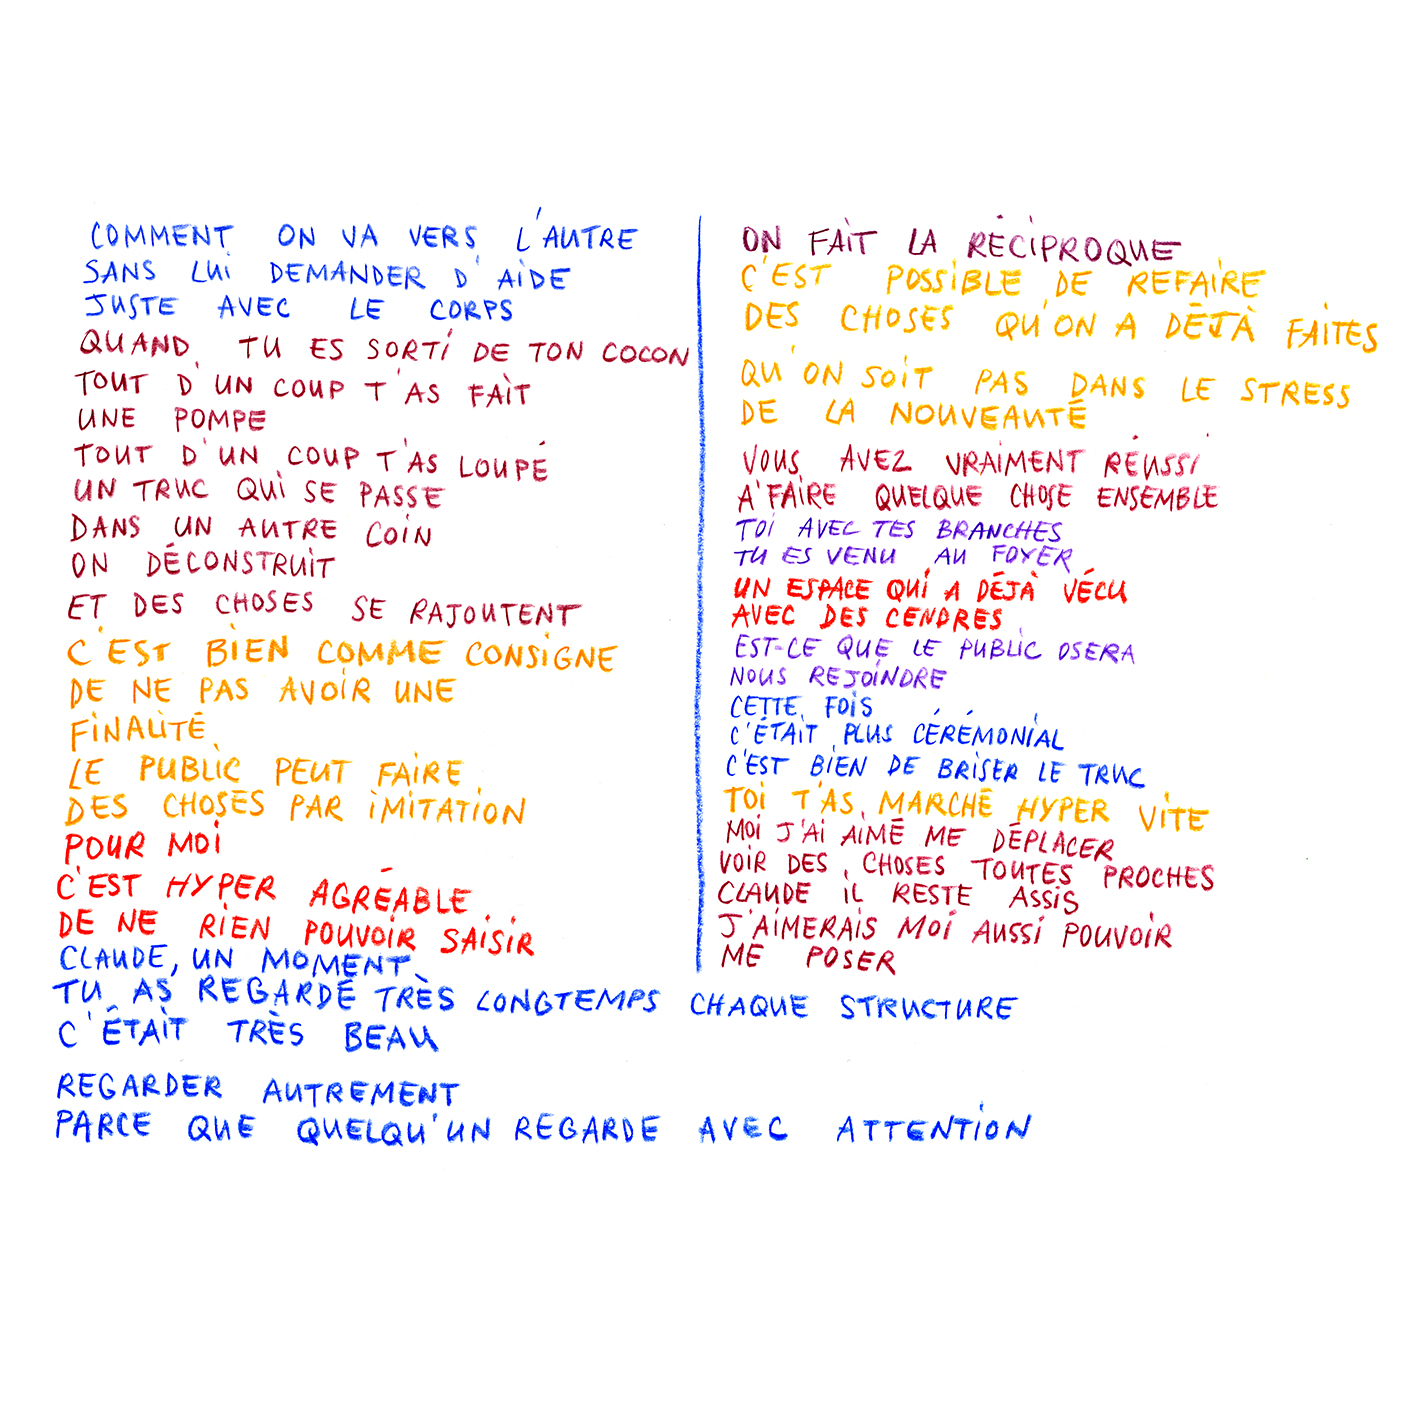 COMMENT ON VA VERS L'AUTRE
SANS LUI DEMANDER D'AIDE
JUSTE AVEC LE CORPS
QUAND TU ES SORTI DE TON COCON
TOUT D'UN COUP T'AS FAIT
UNE POMPE
TOUT D'UN COUP T'AS LOUPÉ
UN TRUC QUI SE PASSE
DANS UN AUTRE COIN
ON DÉCONSTRUIT
ET DES CHOSES SE RAJOUTENT
C'EST BIEN COMME CONSIGNE
DE NE PAS AVOIR UNE
FINALITÉ
LE PUBLIC PEUT FAIRE
DES CHOSES PAR IMITATION
POUR MOI
C'EST HYPER AGRÉABLE
DE NE RIEN POUVOIR SAISIR
CLAUDE, UN MOMENT
TU AS REGARDÉ TRÈS LONGTEMPS CHAQUE STRUCTURE
C'ÉTAIT TRÈS BEAU
REGARDER AUTREMENT
PARCE QUE QUELQU'UN REGARDE AVEC ATTENTION
ON FAIT LA RÉCIPROQUE
C'EST POSSIBLE DE REFAIRE
DES CHOSES QU'ON A DÉJÀ FAITES
QU'ON SOIT PAS DANS LE STRESS
DE LA NOUVEAUTÉ
VOUS AVEZ VRAIMENT RÉUSSI
A FAIRE QUELQUE CHOSE ENSEMBLE
TOI AVEC TES BRANCHES
TU ES VENU AU FOYER
UN ESPACE QUI A DÉJÀ VÉCU
AVEC DES CENDRES
EST-CE QUE LE PUBLIC OSERA
NOUS REJOINDRE
CETTE FOIS
C'ÉTAIT PLUS CÉRÉMONIAL
C'EST BIEN DE BRISER LE TRUC
TOI T'AS MARCHÉ HYPER VITE
MOI J'AI AIMÉ ME DÉPLACER
VOIR DES CHOSES TOUTES PROCHES
CLAUDE IL RESTE ASSIS
J'AIMERAIS MOI AUSSI POUVOIR
ME POSER